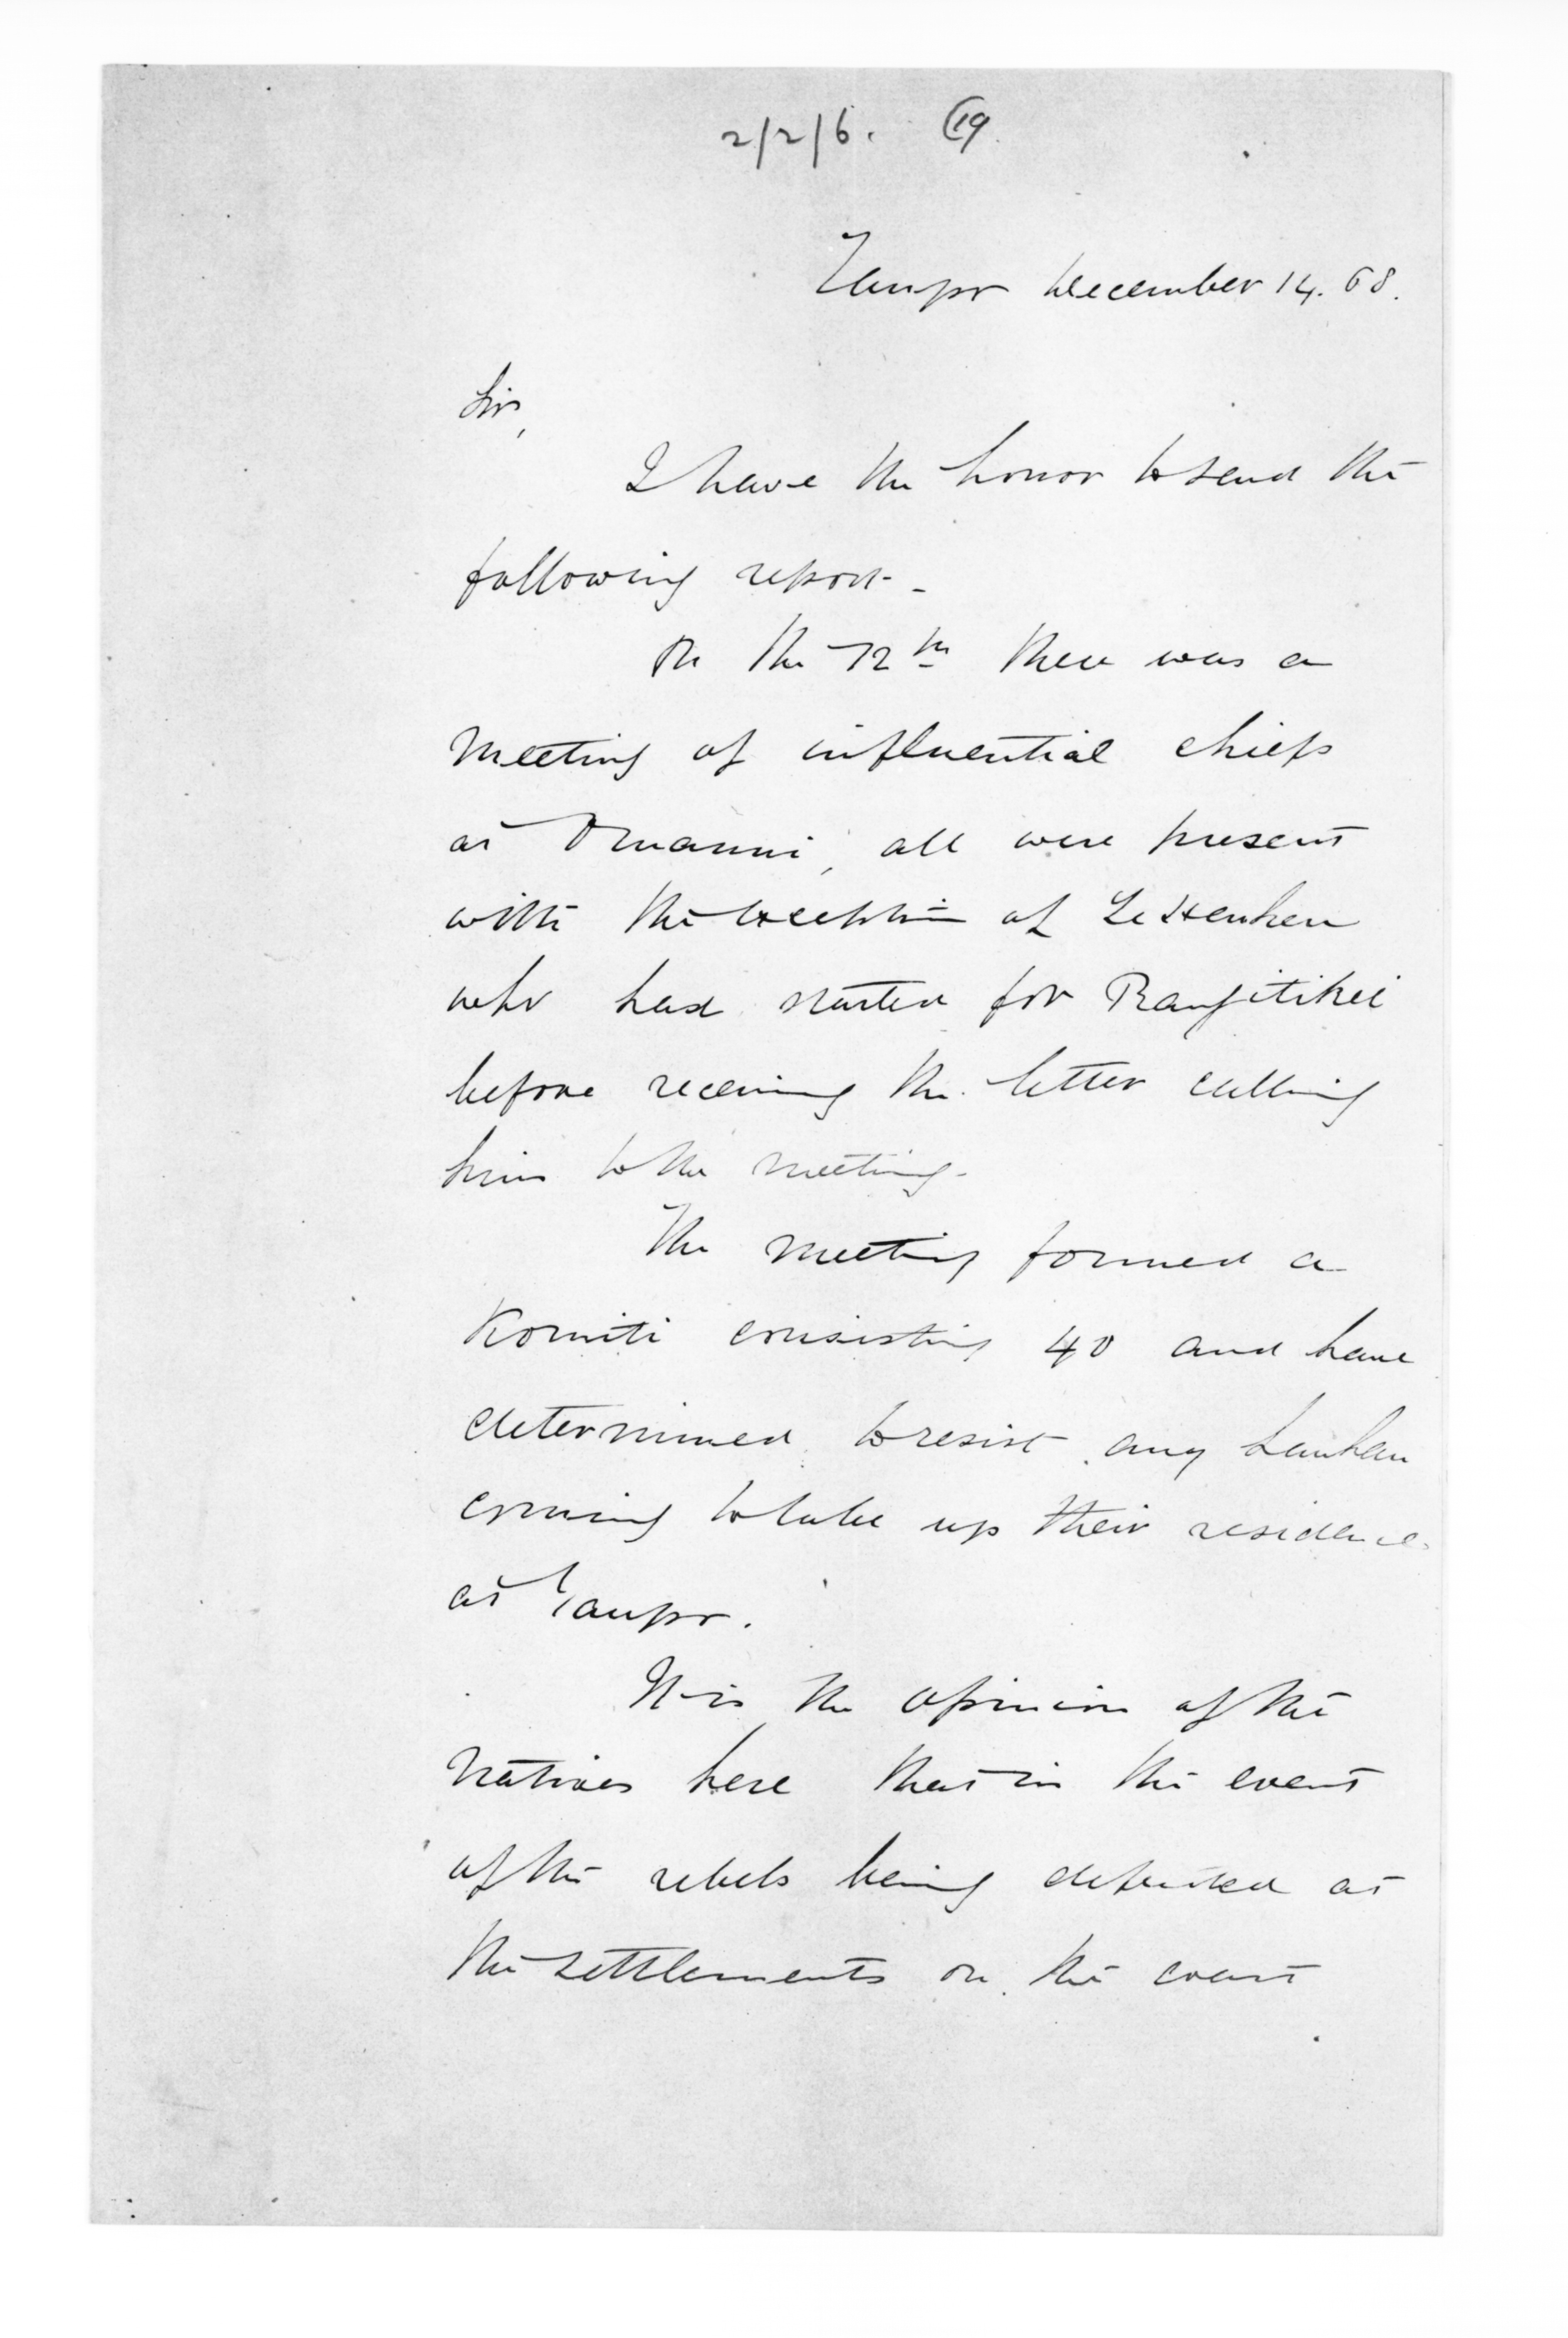 2/2/6. 19
Taupo December 14. 68.
Sir,
I have the honor to send the
following report.
On the 12th there was a
meeting of influential chiefs
at Omaunu, all were present
with the exception of Te Heuheu
who had started for Rangitikei
before receiving the letter calling
him to the meeting.
The meeting formed a
Komiti consisting 40 and have
determined to resist any Hauhau
coming to take up their residence
at Taupo.
It is the opinion of the
natives here that in the event
of the rebels being defeated at
the settlements on the coast